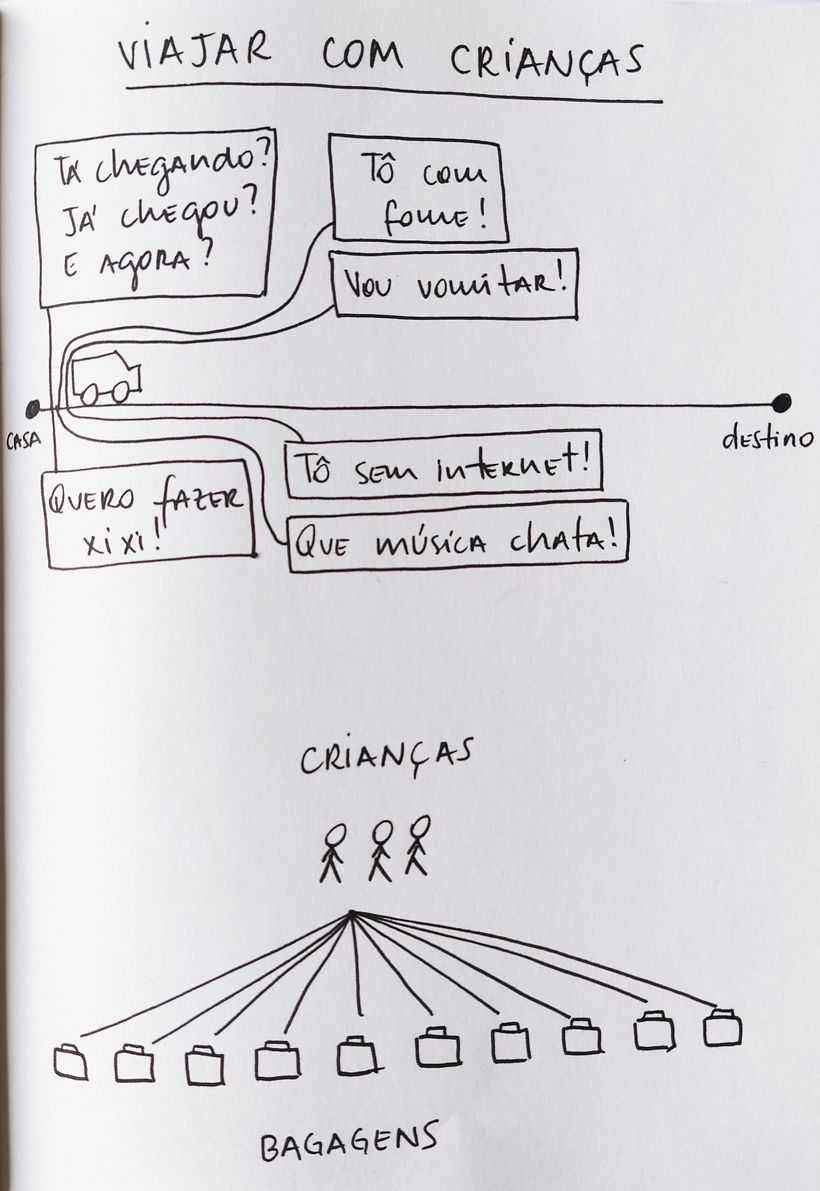 VIAJAR COM CRIANÇAS
TÁ chegando?
JÁ chegou?
E AGORA?
Tô com
fome!
Vou vomitar!
CASA
destino
Tô sem internet!
QUERO fazer
xixi!
Que música chata!
CRIANÇAS
BAGAGENS